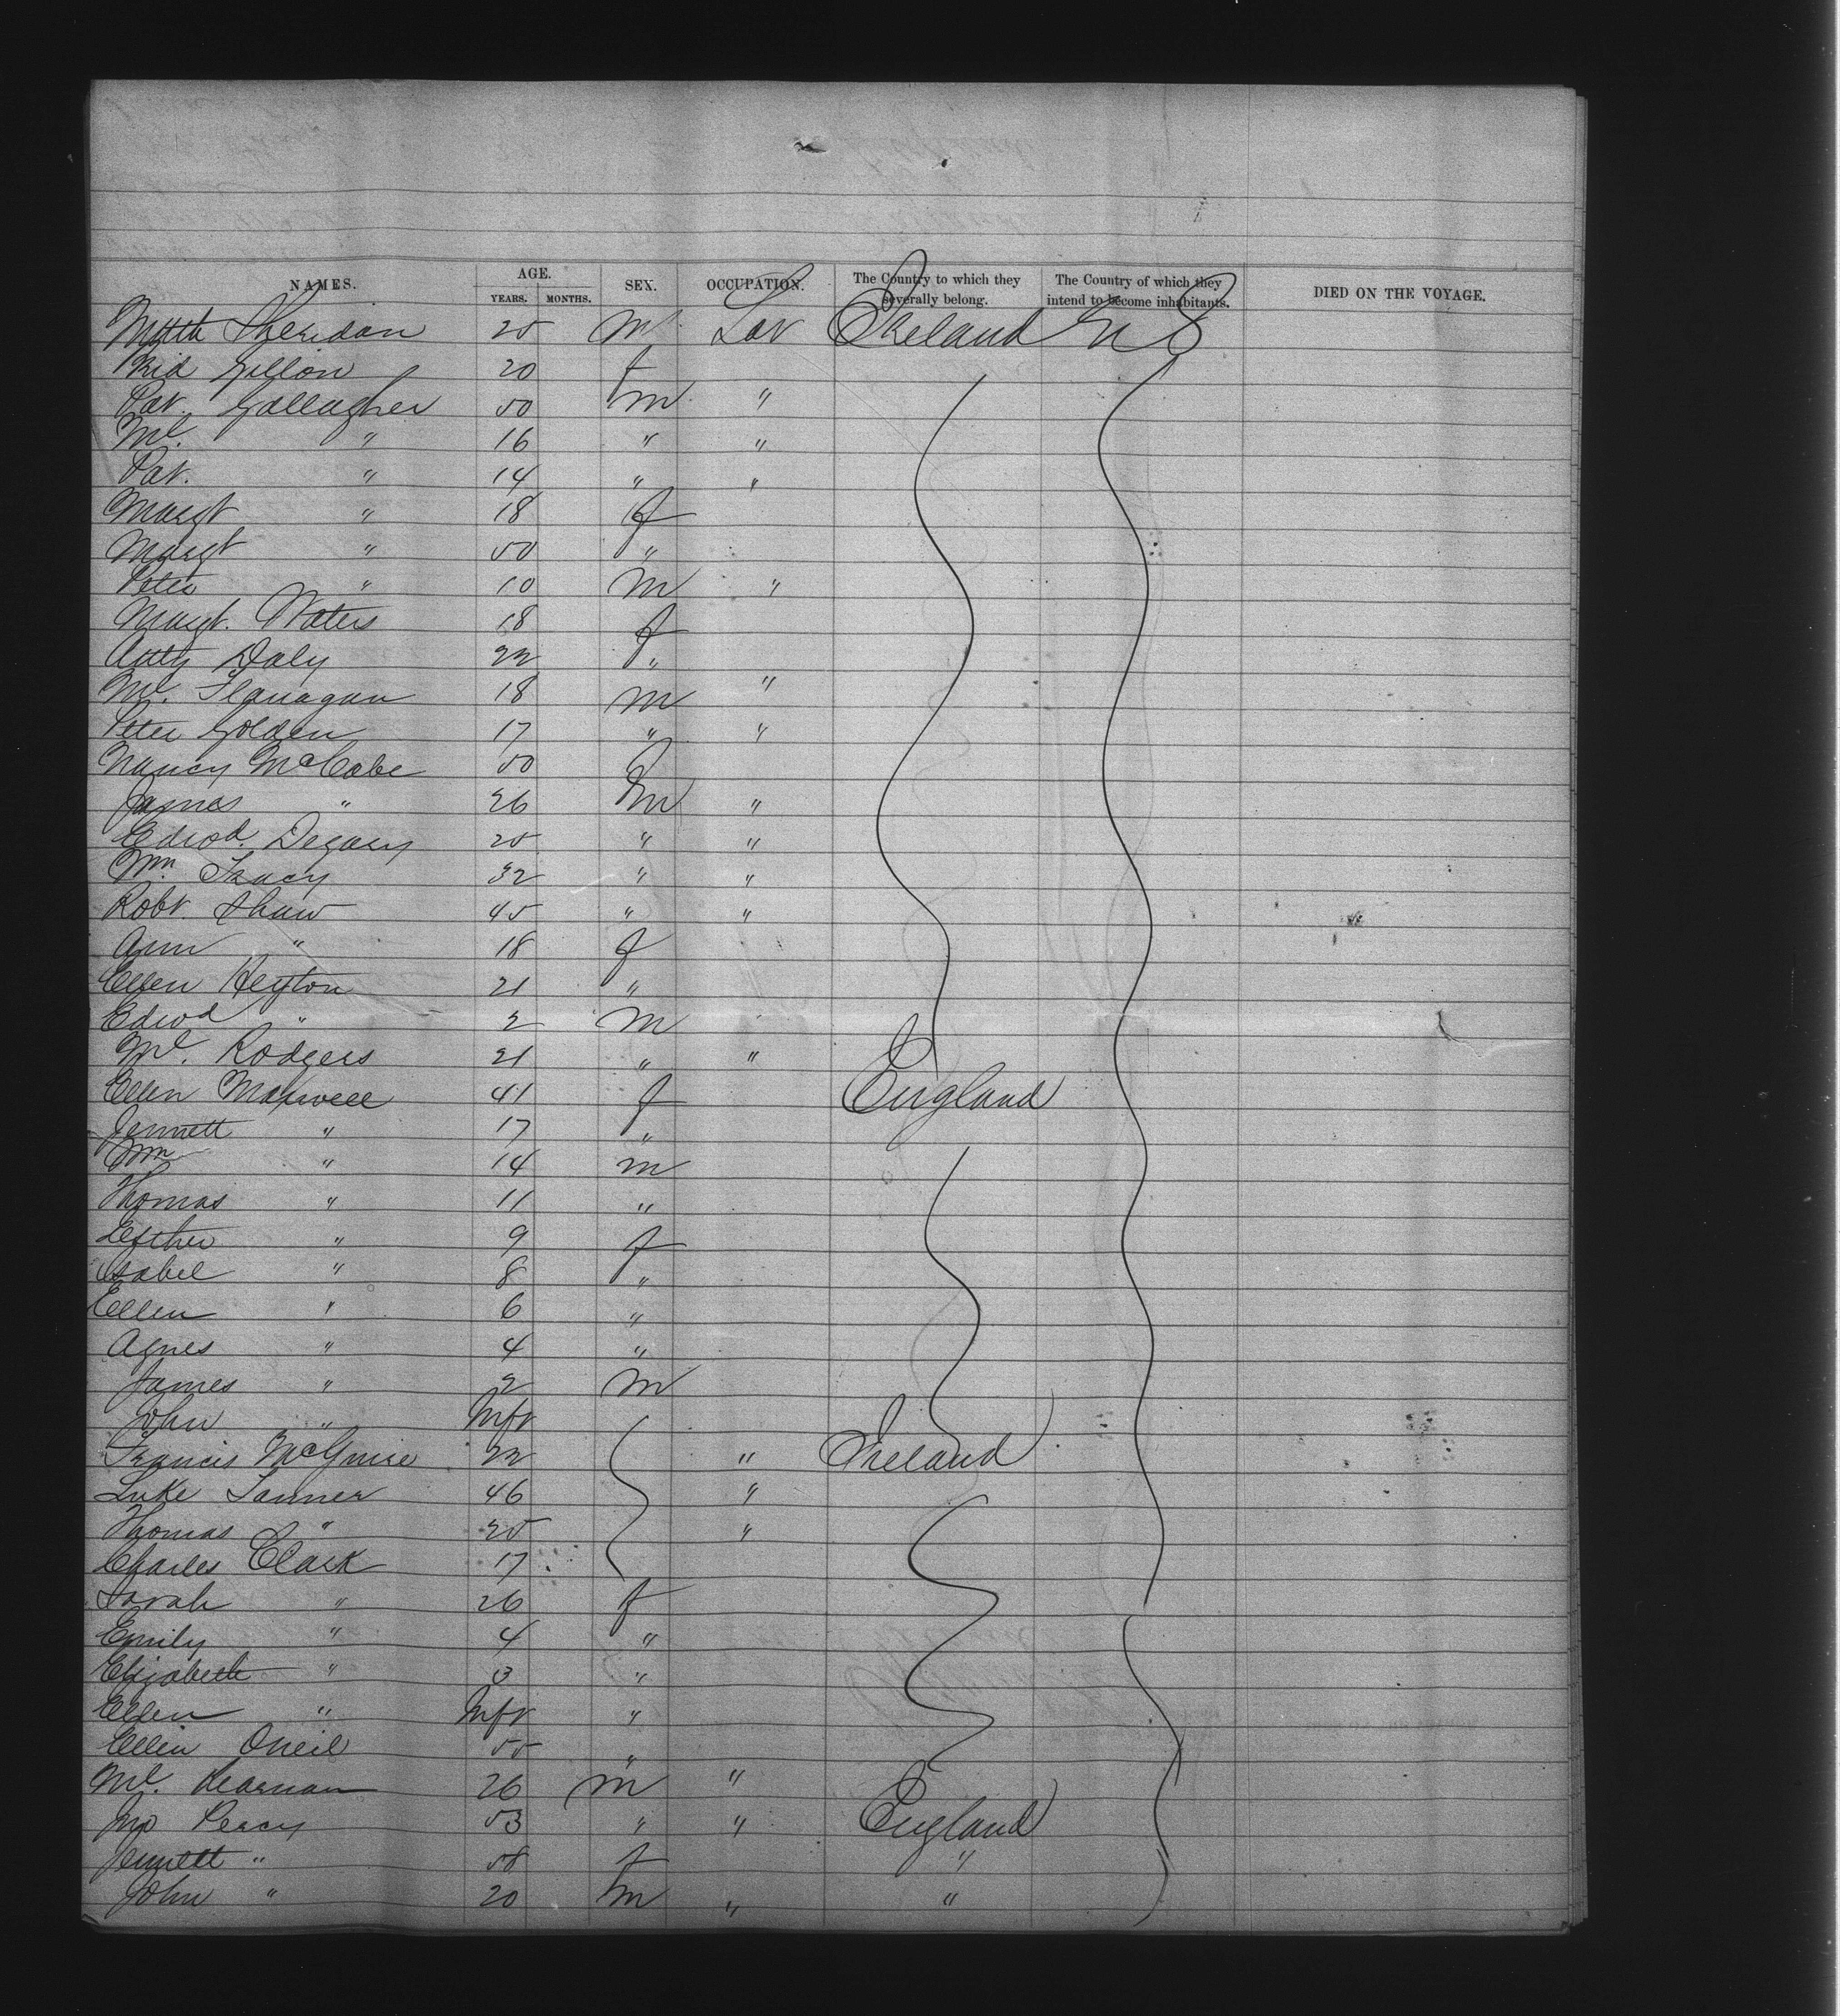 NAMES. AGE. YEARS. MONTHS. SEX. OCCUPATION. The Country to which they severally belong. The Country of which they intend to become inhabitants. DIED ON THE VOYAGE.
Sheridan 25 m Lav Ireland U S
Bid Gillon 20 f
Pat. Gallagher 50 m "
Ml. " 16 " "
Pat. " 14 " "
Margt " 18 f
Margt " 50 "
Peter " 10 m "
Margt. Waters 18 f
Daly 22 "
Ml. Flanagan 18 m "
Peter Golden 17 " "
Nancy McCabe 50 f
James " 26 m "
Edwd. Degacy 25 " "
Wm. 32 " "
Robt. Shaw 45 " "
Ann " 18 f
Ellen Heyton 21 "
Edwd " 2 m
Ml. Rodgers 21 " "
Ellen Maxwell 41 f England
Jennett " 17 "
Wm " 14 m
Thomas " 11 "
Esther " 9 f
Isabel " 8 "
Ellen " 6 "
Agnes " 4 "
James " 2 m
John " Inft
Francis McGuire 22 " Ireland
Luke 46 "
Thomas " 25 "
Charles Clark 17
Sarah " 26 f
Emily " 4 "
Elizabeth " 3 "
Ellen " Inft "
Ellen Oneil 55 "
Ml. Kearnan 26 m "
Jno Peacy 53 " " England
Jennett " 58 f "
John " 20 m " "